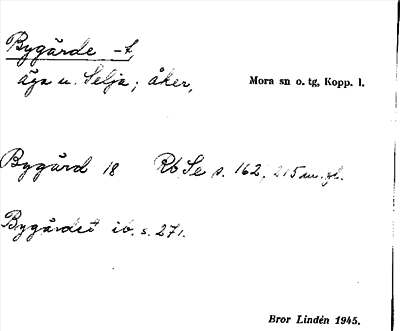 Bygärde -t,
äga u. Selja; åker,
Mora sn o. tg, Kopp. l.
Bygärd 18 Rb Se s. 162, 215 m. fl.
Bygärdet ib. s. 271.
Bror Lindén 1945.